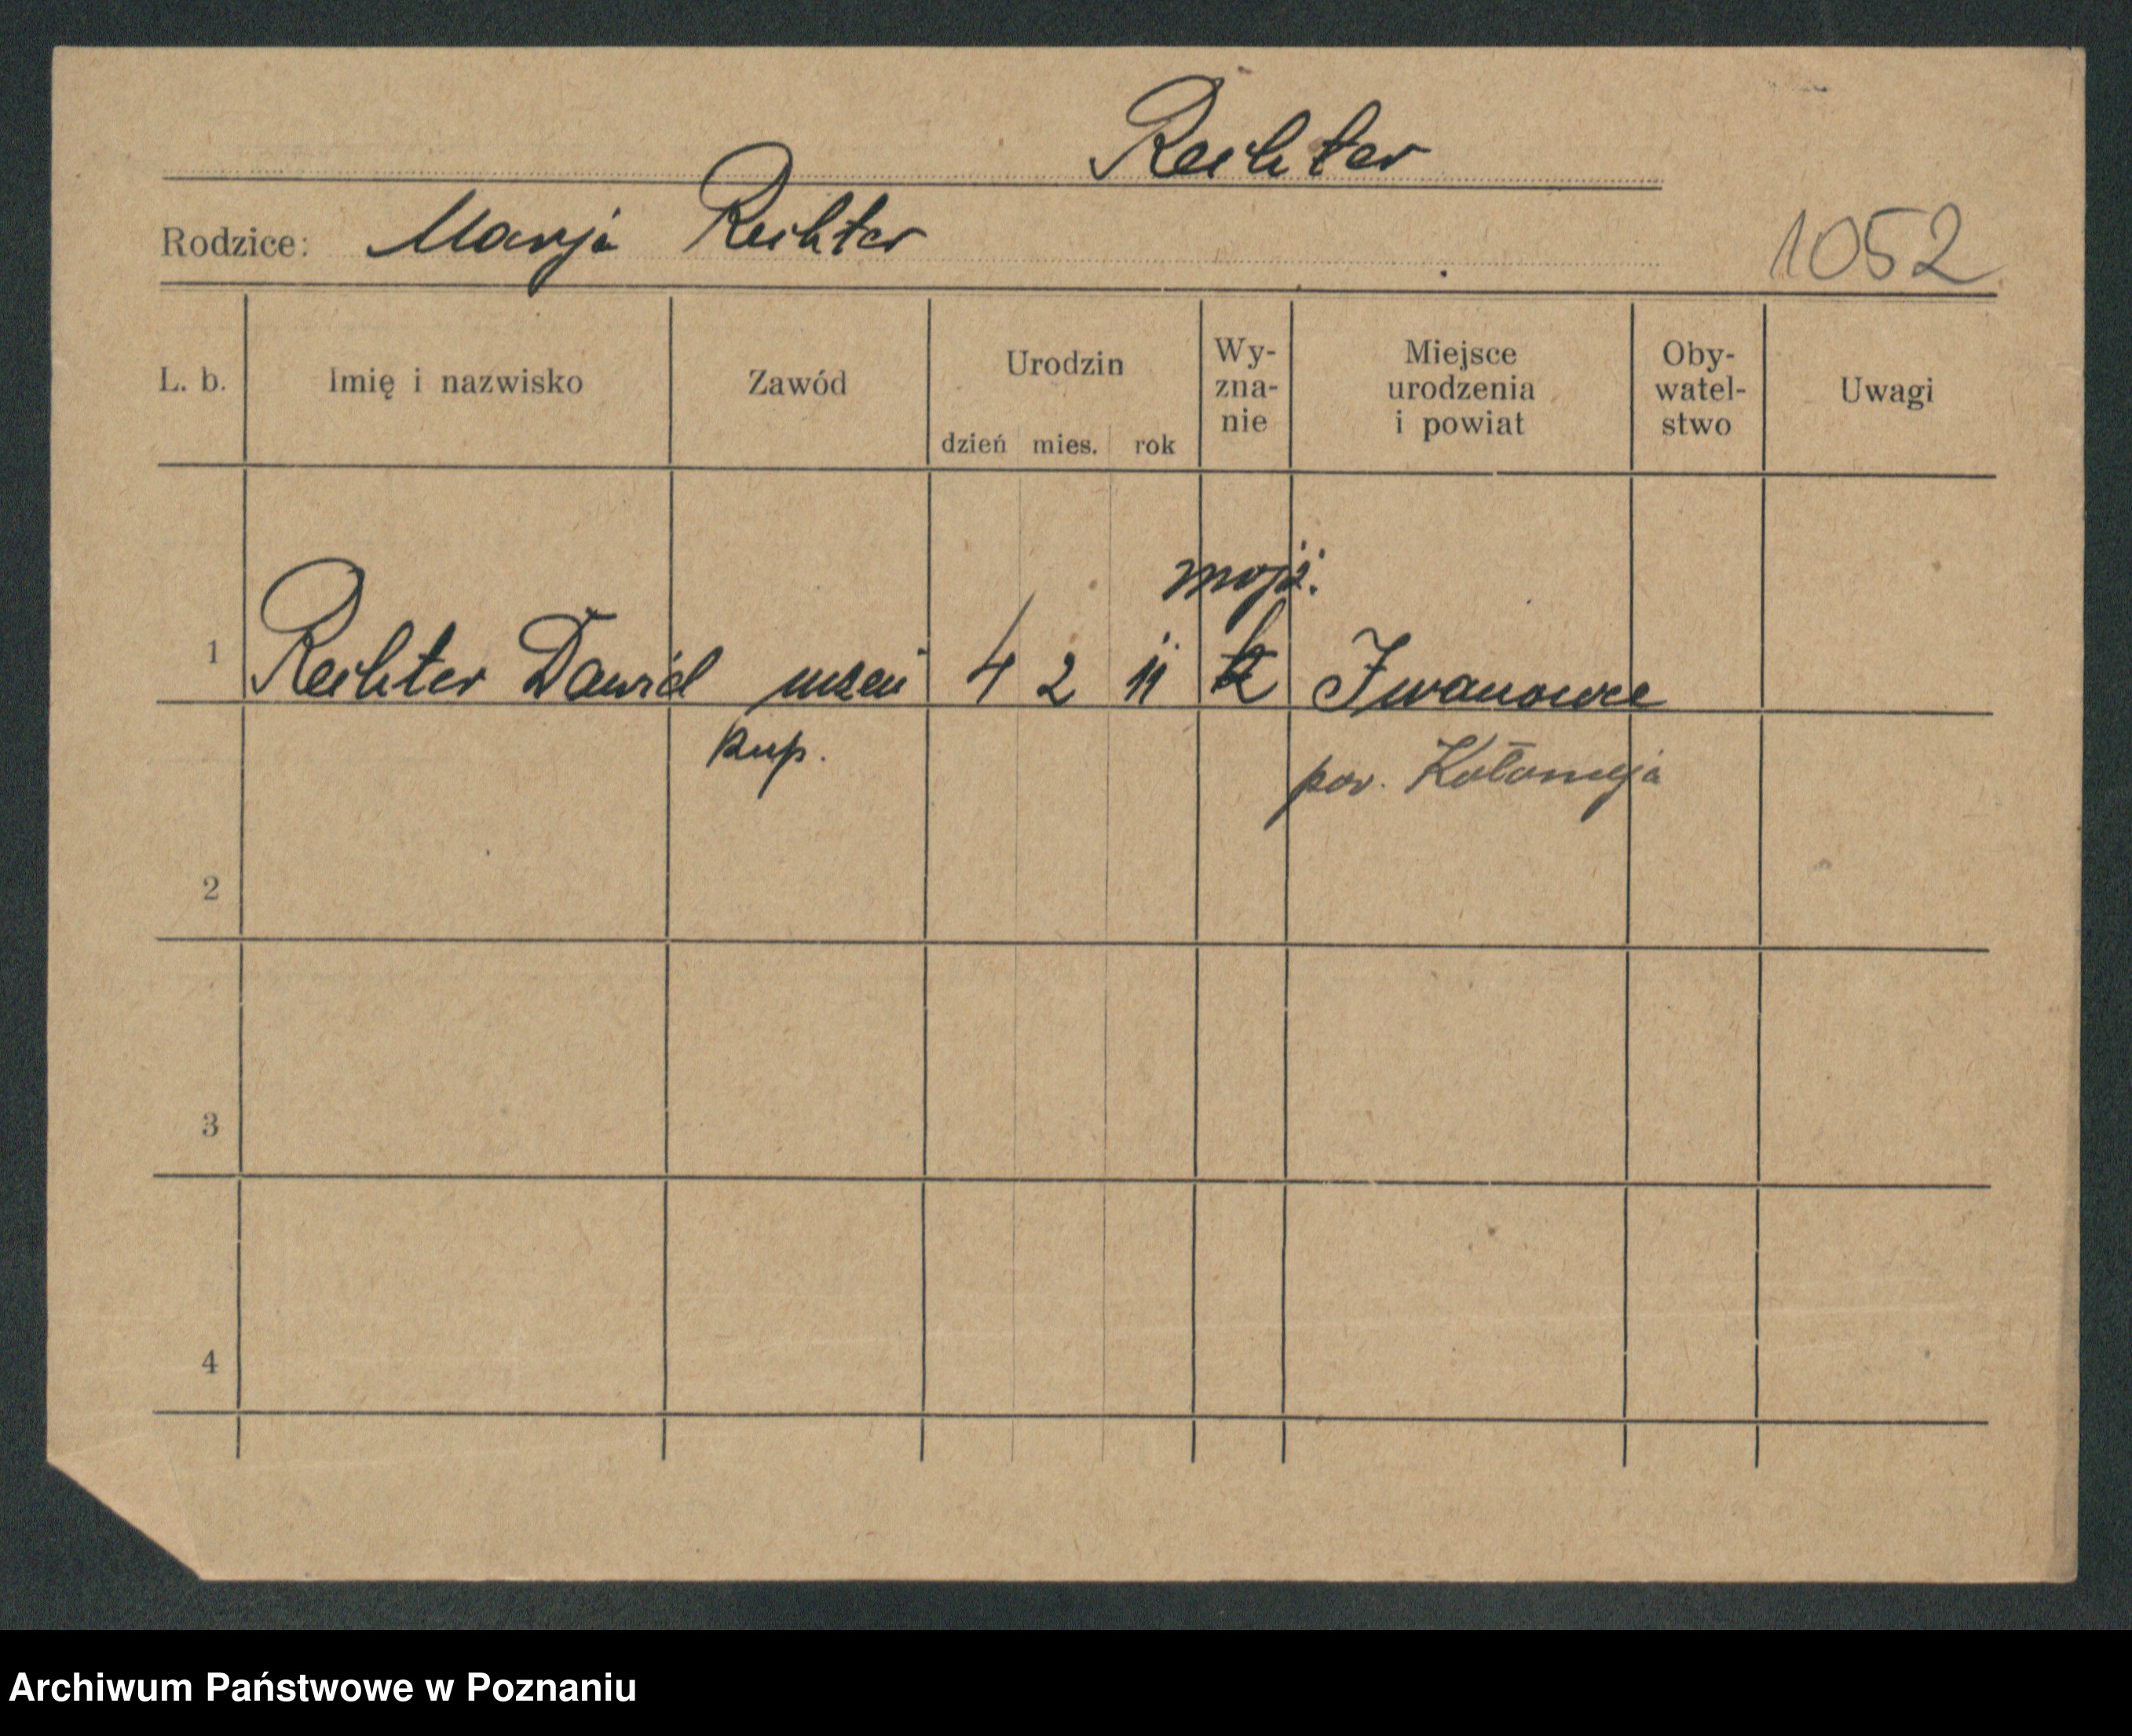 Rechter
Rodzice: Marja Rechter
1052
L. b. Imię i nazwisko Zawód Urodzin dzień mies. rok Wy-zna-nie Miejsce urodzenia i powiat Oby-watel-stwo Uwagi
mojż.
1 Rechter Dawid uczeń 4 2 11 Iwanowce
kup. pow. Kołomyja
2
3
4
Archiwum Państwowe w Poznaniu